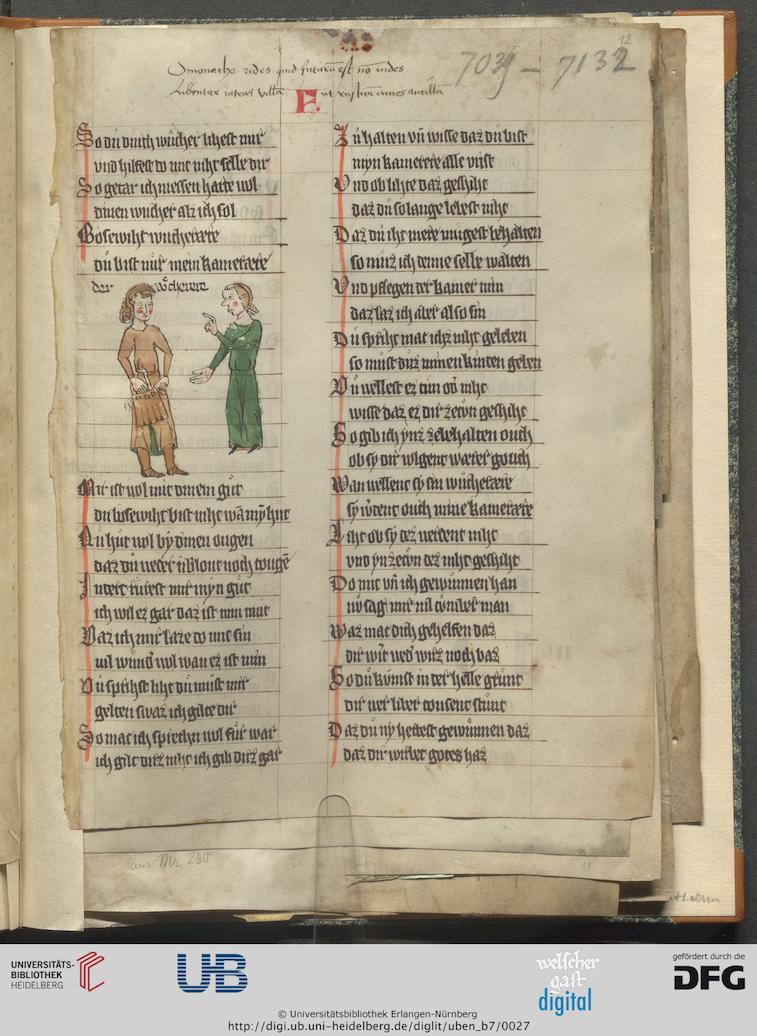 O monache rides quid futurū est nō uides
Libenter intras villā
Et rusticā amas ancillā
7039 – 7132
12
So du durch wuͦcher lihest mir
vnd hilfest do mit niht selle dir
So getar ich niessen harte wol
dinen wucher als ich sol
Bosewiht wucherere
du bist nuͦr mein kamerere
der wuͦcherere
Mir ist wol mit dinem guͦt
du bosewiht bist niht wā myn hut
Nu huͤt wol by dinen ougen
daz du weder ublout noch tougē
Indert ruͤrest mir myn guͦt
ich wil ez gar daz ist min mut
Daz ich mir laze do mit sin
vil wund wol wan ez ist min
Du sprihst liht du muͦst mir
gelten swaz ich gilte dir
So mac ich sprechn wol fuͤr war
ich gilt dirz niht ich gib dirz gar
Zu halten vn̄ wisse daz du bist
myn kamerere alle vrist
Vnd ob lihte daz geshiht
daz du so lange lebest niht
Daz du iht mere mugest behalten
so muͦz ich denne selle walten
Vnd pflegen der kamer min
daz laz ich aber also sin
Du sprihst mac ichz niht geleben
so muͦst duz minen kinden geben
Du wellest ez tun od niht
wisse daz ez dir zetwn geshiht
So gib ich ynz zebehalten ouch
ob sy dir volgent werer gouch
Wan wellent sy sin wucherere
sy werdent ouch mine kamerere
Iht ob sy dez werdent niht
vnd yn zetwn dez niht geshiht
Do mit vn̄ ich gewunnen han
nu sag mir vil ubeler man
Waz mac dich gehelfen daz
dir wirt wed wirs noch baz
So du kumst in der helle grunt
dir wer liber tousent stunt
Daz du ny hetest gewunnen daz
daz dir wirbet gotes haz
aus Ms. 260
11
UNIVERSITÄTS-
BIBLIOTHEK
HEIDELBERG
UB
welscher
gast
digital
gefördert durch die
DFG
© Universitätsbibliothek Erlangen-Nürnberg
http://digi.ub.uni-heidelberg.de/diglit/uben_b7/0027